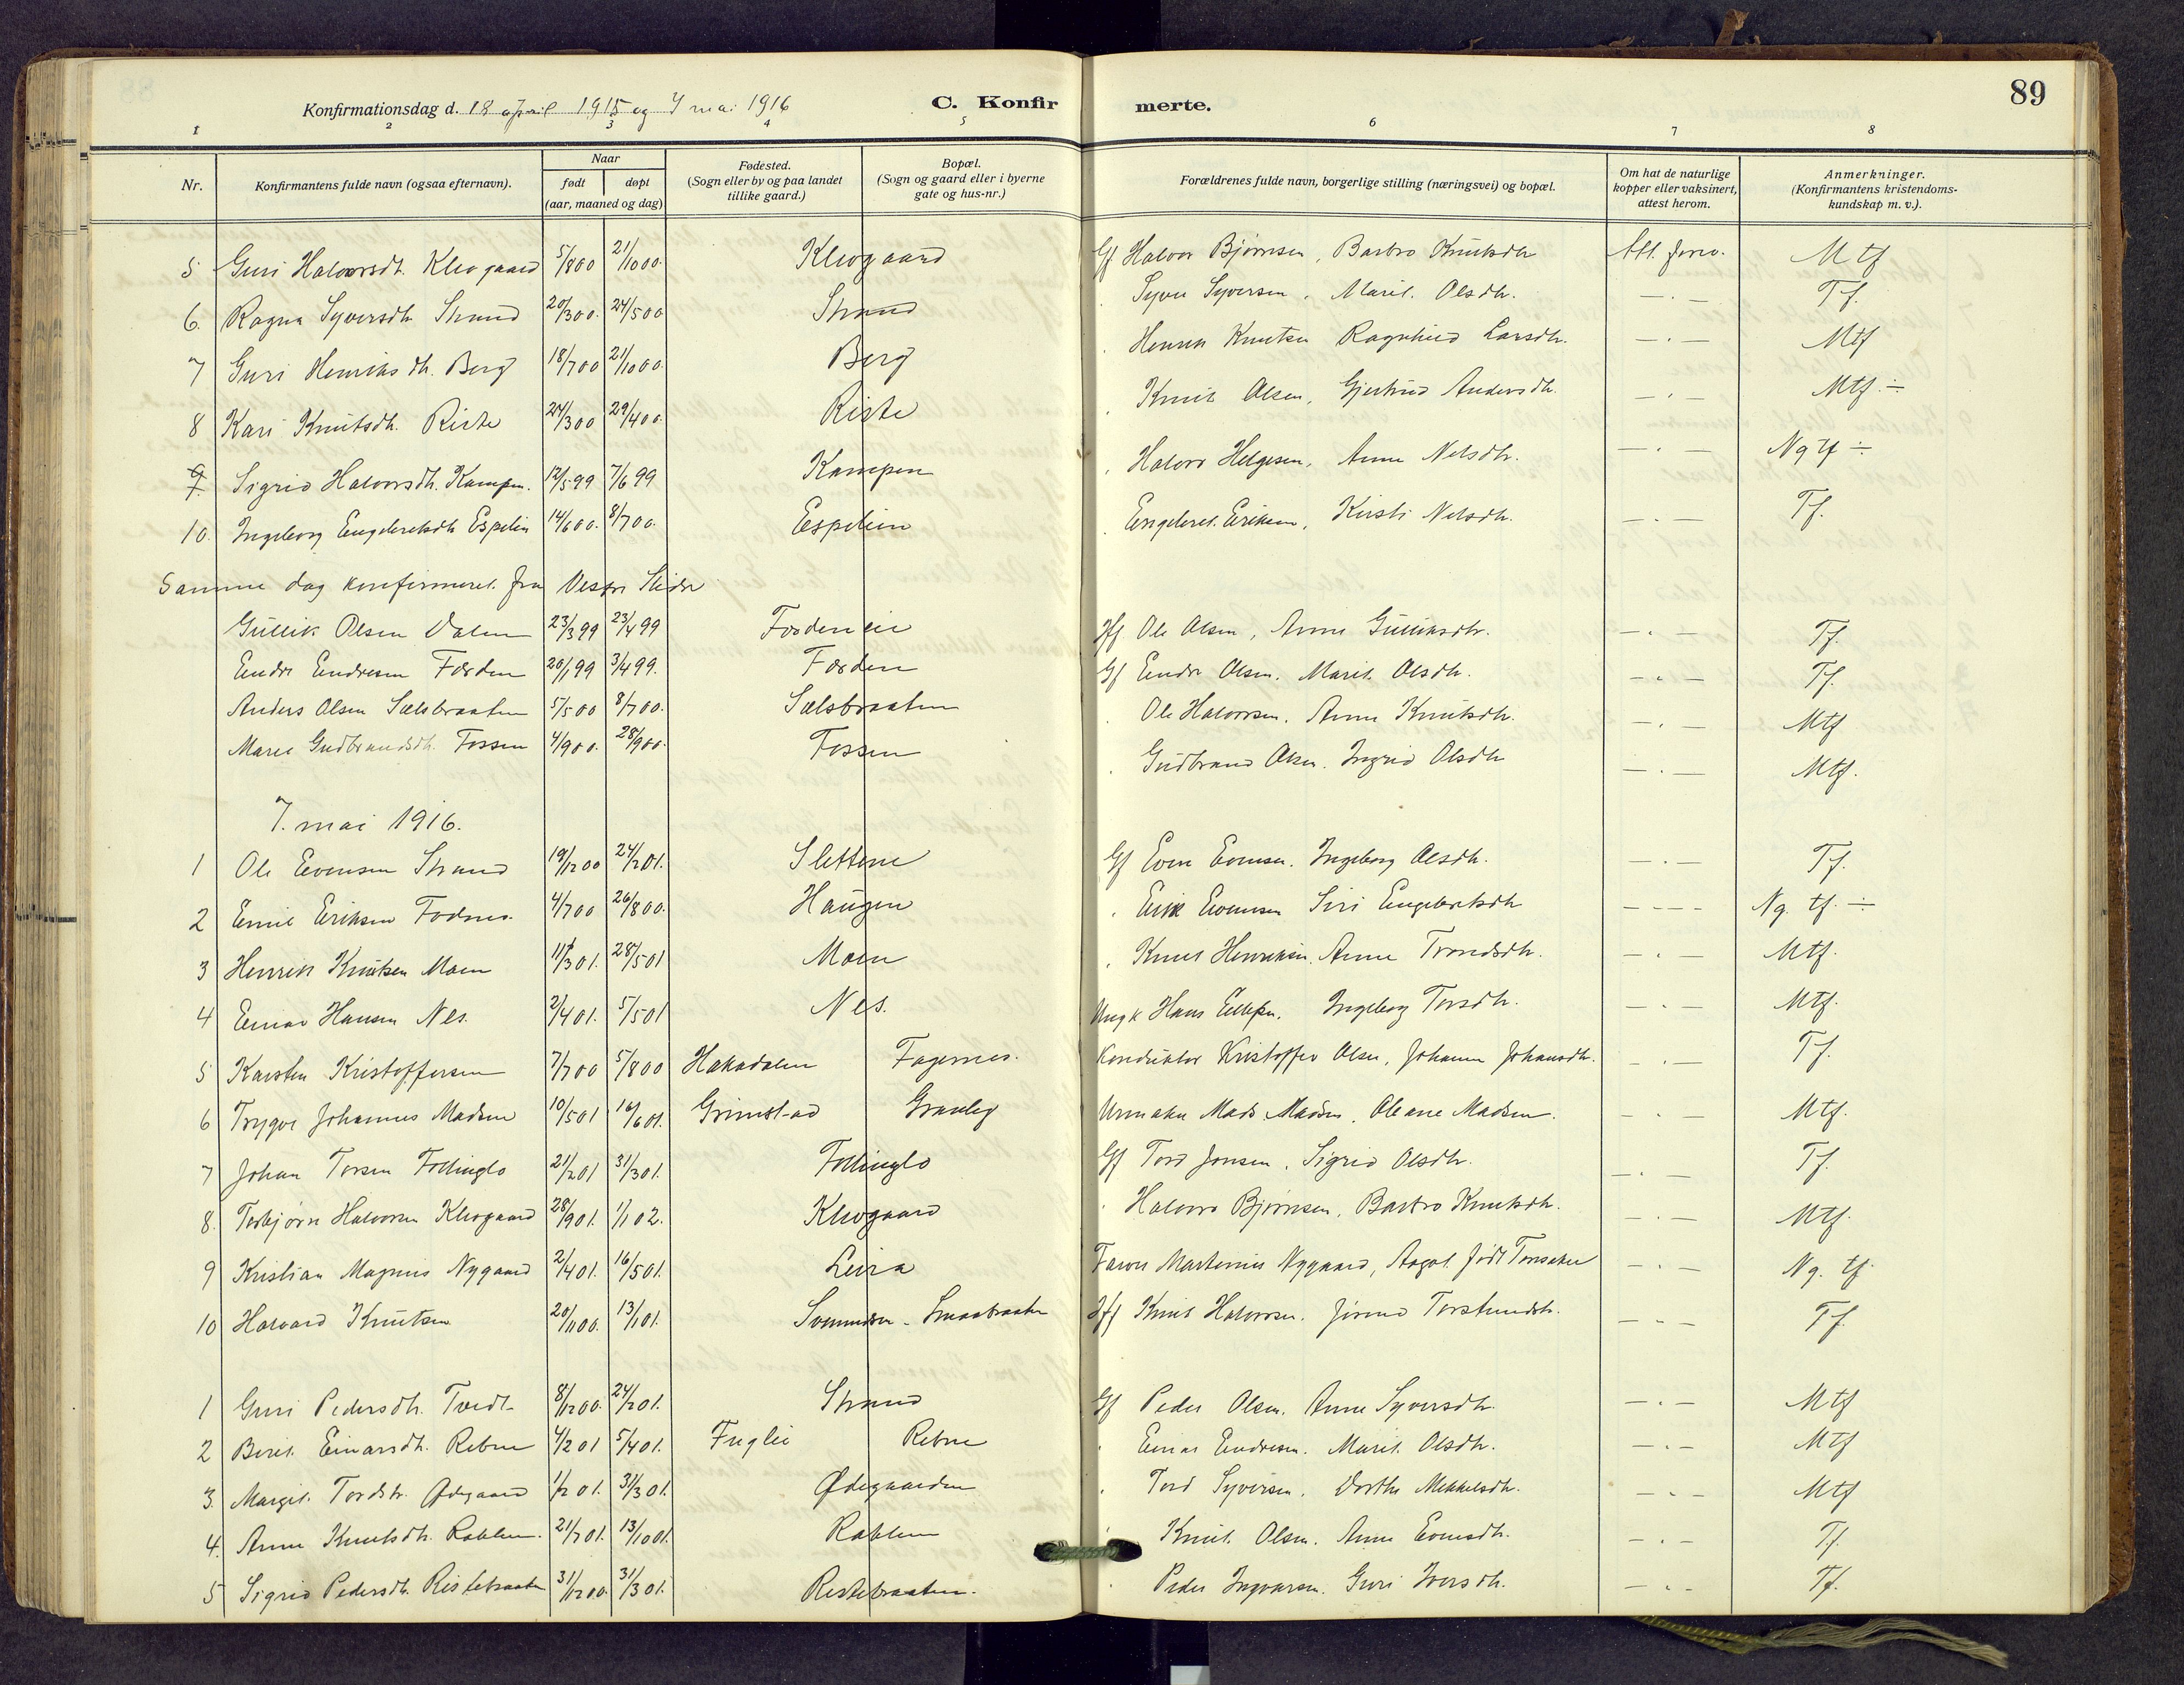 Konfirmationsdag d. 18 april 1915 og 7 mai 1916 C. Konfir merte. 89
1 2 3 4 5 6 7 8
Nr. Konfirmantens fulde navn (ogsaa efternavn). Naar født døpt (aar, maaned og dag) Fødested. (Sogn eller by og paa landet tillike gaard.) Bopæl. (Sogn og gaard eller i byerne gate og hus-nr.) Forældrenes fulde navn, borgerlige stilling (næringsvei) og bopæl. Om hat de naturlige kopper eller vaksinert, attest herom. Anmerkninger. (Konfirmantens kristendoms-kundskap m. v.).
5 Guri Halvorsdtr. Klevgaard 5/8 00 21/10 00. Klevgaard Gf Halvor Bjørnsen, Barbro Knutsdtr Att. forev. Mtf
6. Ragna Syversdtr Strand 20/3 00. 24/5 00 Strand Syver Syversen, Marit Olsdtr. — . — Tf.
7 Guri Henriksdtr. Berg 18/7 00 21/10 00. Berg Henrik Knutsen Ragnhild Larsdtr. — . — Mtf
8 Kari Knutsdtr. Riste 24/3 00 29/4 00. Riste Knut Olsen, Gjertrud Andersdtr. — . — Mtf. ÷
9 Sigrid Halvorsdtr. Kampen. 12/5 99 7/6 99 Kampen Halvor Helgesen, Anne Nelsdtr. — . — Ng tf ÷
10. Ingeborg Engebretsdtr Espelien 14/6 00. 8/7 00. Espelien Engebret Eriksen, Kirsti Nelsdtr. — . — Tf.
Samme dag konfirmeret fra Vestre Slidre
Gullik Olsen Dalen 23/3 99 23/4 99 Fordeneie Hf Ole Olsen, Anne Gulliksdtr. — . — Tf.
Endre Endresen Førden 20/1 99 3/4 99. Førden Gf Endre Olsen. Marit Olsdtr. — . — Tf.
Anders Olsen Sælsbraaten 5/5 00 8/7 00. Sælsbraaten Ole Halvorsen. Anne Knutsdtr. — . — Mtf
Marit Gudbrandsdtr. Fossen 4/9 00. 28/9 00. Fossen Gudbrand Olsen. Ingrid Olsdtr — . — Mtf.
7. mai 1916.
1 Ole Evensen Strand 19/12 00 24/2 01. Slettene Gf Even Evensen. Ingeborg Olsdtr. — . — Tf.
2 Emil Eriksen Fodnes. 4/7 00 26/8 00. Haugen Erik Evensen Siri Engebretsdtr — - — Ng. tf. ÷
3 Henrik Knutsen Moen 11/3 01. 28/5 01 Moen Knut Henriksen. Anne Trondsdtr. — . — Mtf.
4 Einar Hansen Nes. 2/4 01. 5/5 01 Nes. Ungk Hans Ellefsen. Ingeborg Torsdtr. — . — Mtf.
5 Karsten Kristoffersen 7/7 00 5/8 00 Hakadalen Fagernes. Konduktør Kristoffer Olsen, Johanne Johansdtr. — . — Tf.
6 Trygve Johannes Madsen 10/5 01 16/6 01. Grimstad Granly Urmaker Mads Madsen. Oleane Madsen. — . — Mtf.
7 Johan Torsen Follinglo 21/2 01 31/3 01. Follinglo Gf Tord Jonsen. Sigrid Olsdtr. — . — Tf.
8. Torbjørn Halvorsen Klevgaard 28/9 01. 1/1 02. Klevgaard Halvor Bjørnsen, Barbro Knutsdtr. — . — Mtf.
9 Kristian Magnus Nygaard 2/4 01. 16/5 01. Leira Farver Martinius Nygaard, Aagot født Tonsaker — . — Ng. tf.
10 Halvard Knutsen 20/11 00. 13/1 01. Smaabraaten Hf Knut Halvorsen. Jørend Torsteinsdtr. — . — Tf.
1 Guri Pedersdtr. Tvedt 8/12 00. 24/2 01. Strand Gf Peder Olsen. Anne Syversdtr. — . — Mtf
2 Berit Einarsdtr. Rebne 4/2 01 5/4 01. Fuglei Rebne Einar Endresen. Marit Olsdtr. — . — Mtf
3. Margit Tordsdtr. Ødegaard 1/2 01. 31/3 01. Ødegaarden Tord Syversen. Dorthe Mikkelsdtr. — . — Mtf
4. Anne Knutsdtr. Rablien. 21/7 01. 13/10 01. Rablien Knut Olsen. Anne Evensdtr. — . — Tf.
5 Sigrid Pedersdtr. Ristebraaten 31/12 00. 31/3 01. Ristebraaten. Peder Ingvarsen. Guri Iversdtr. — . — Tf.